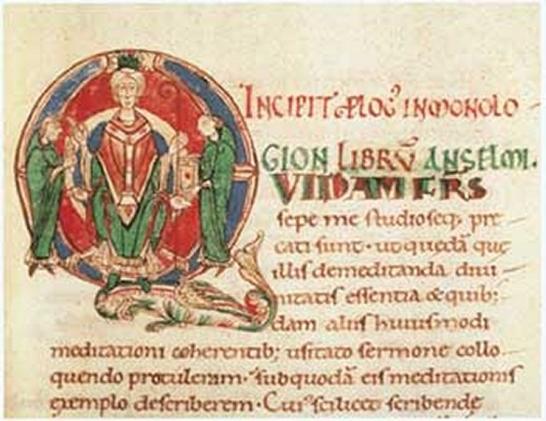 INCIPIT PLOG' IN MONOLO-
GION LIBRŪ ANSELMI.
VIDAM FRS
sepe me studioseq; pre-
cati sunt· ut quedā que
illis de meditanda diui-
nitatis essentia & quib;-
dam aliis huiusmodi
meditationi coherentib; usitato sermone collo-
quendo protuleram· sub quodā eis meditationis
exemplo describerem· Cui' scilicet scribende